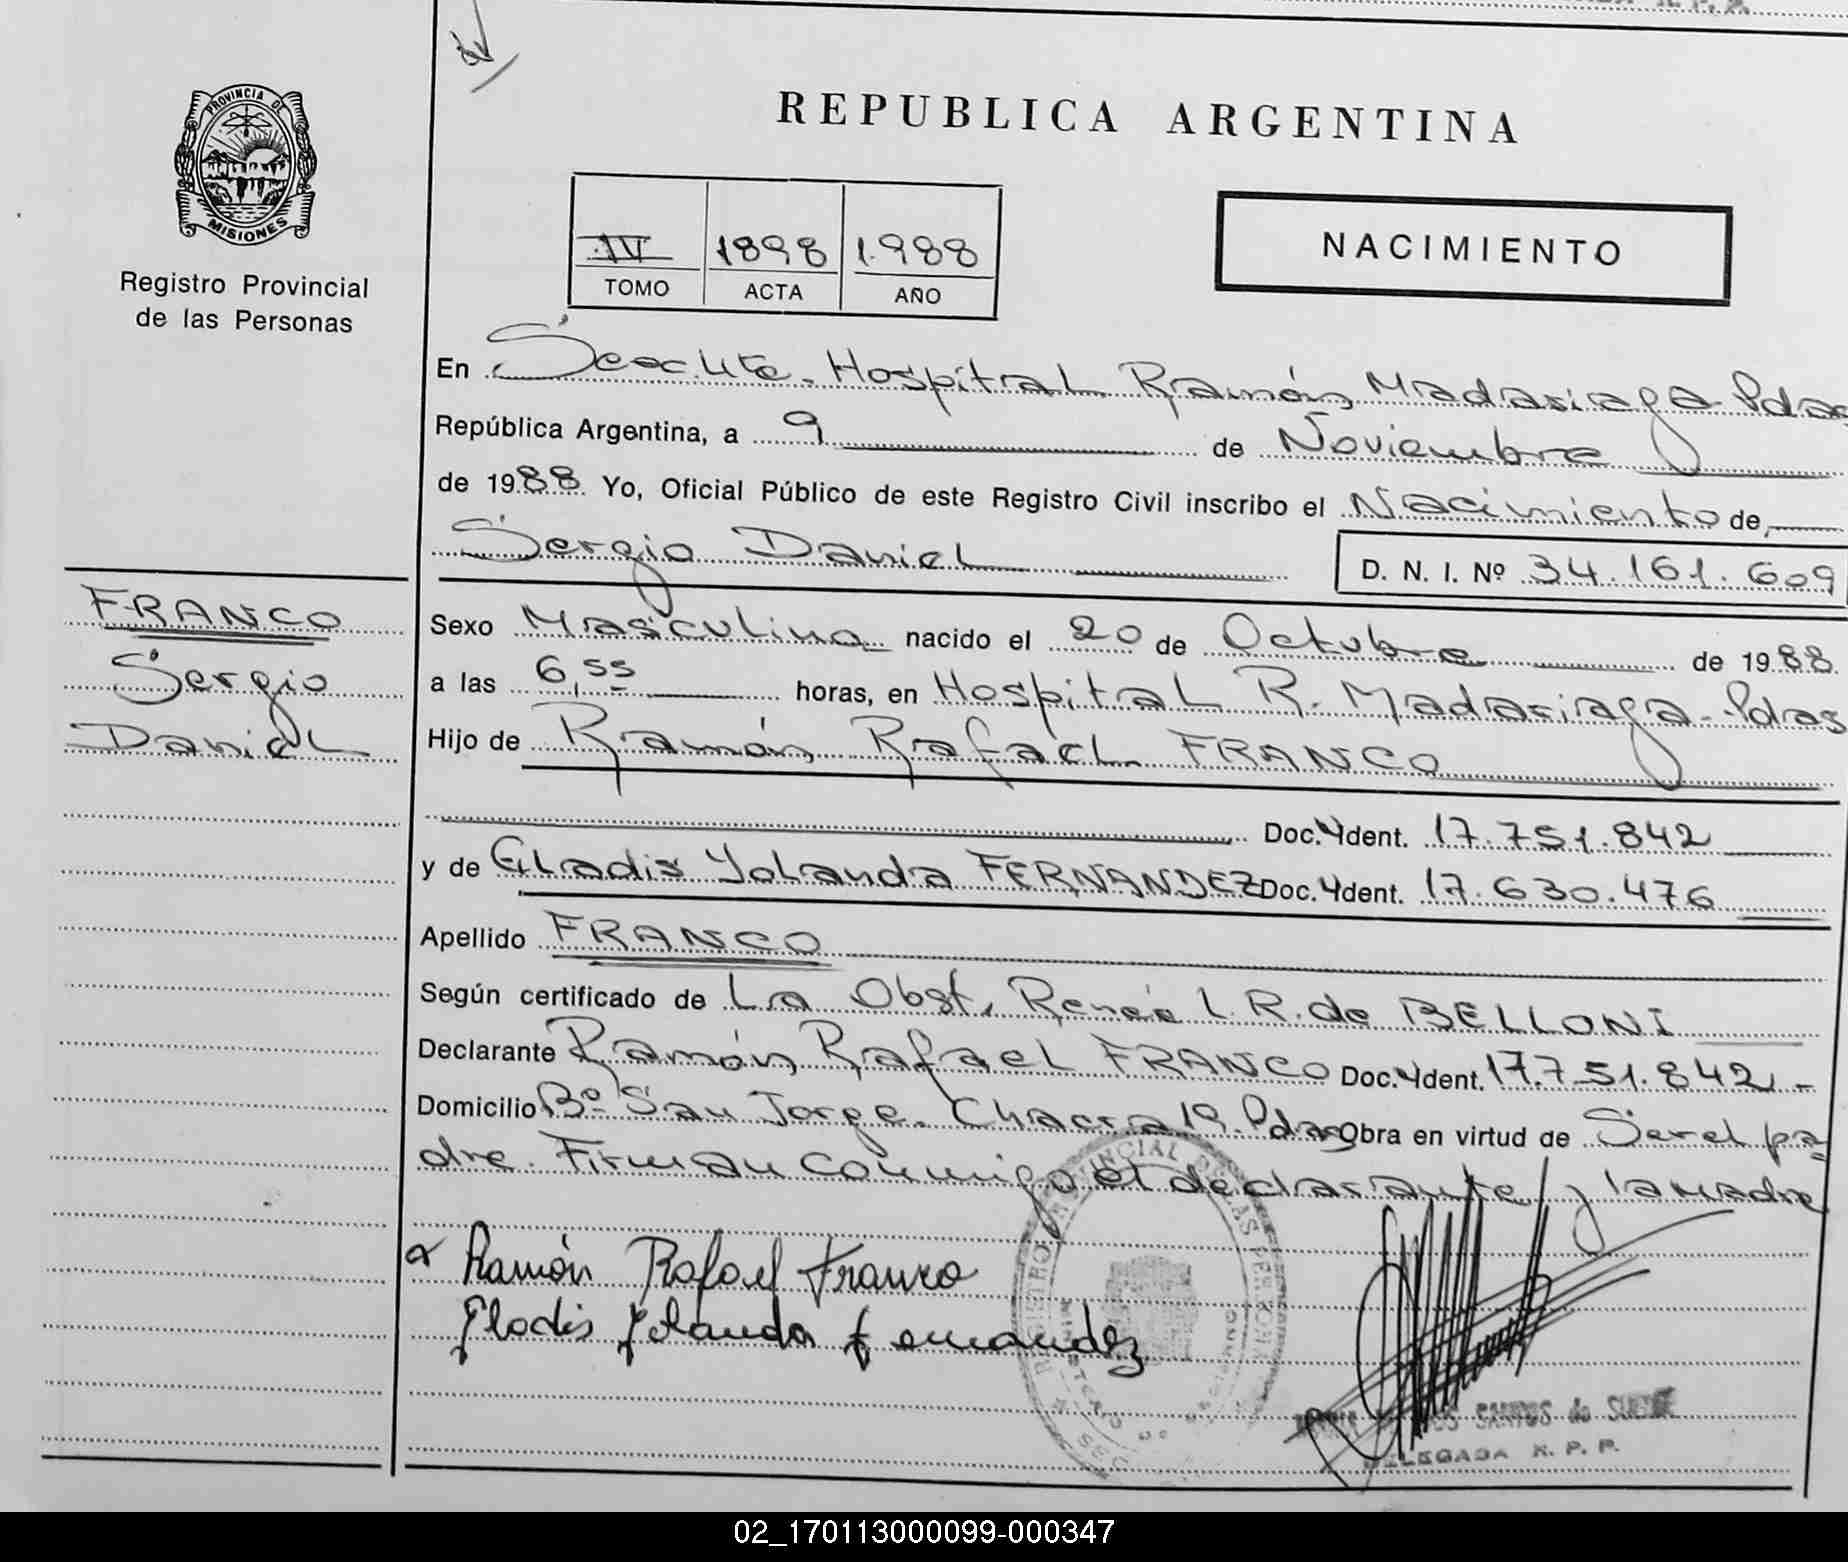 PROVINCIA DE
MISIONES
Registro Provincial
de las Personas
REPUBLICA ARGENTINA
IV 1898 1.988
TOMO ACTA AÑO
NACIMIENTO
En Hospital Ramón Madariaga Pdas
República Argentina, a 9 de Noviembre
de 1988 Yo, Oficial Público de este Registro Civil inscribo el Nacimiento de,
Sergio Daniel
D. N. I. Nº 34.161.609
FRANCO
Sergio
Daniel
Sexo Masculino nacido el 20 de Octubre de 1988.
a las 6,55 horas, en Hospital R. Madariaga-Pdas
Hijo de Ramón Rafael FRANCO
Doc. Ydent. 17.751.842
y de Gladis Yolanda FERNANDEZ Doc. Ydent. 17.630.476
Apellido FRANCO
Según certificado de La Obst. Renée L. R. de BELLONI
Declarante Ramón Rafael FRANCO Doc. Ydent. 17.751.842-
Domicilio Bº San Jorge. Chacra 19. Pdas Obra en virtud de Ser el pa
dre. Firman conmigo el declarante y la madre
Ramón Rafael Franco
Gladis Yolanda Fernandez
SANTOS de
DELEGADA R. P. P.
02_170113000099-000347